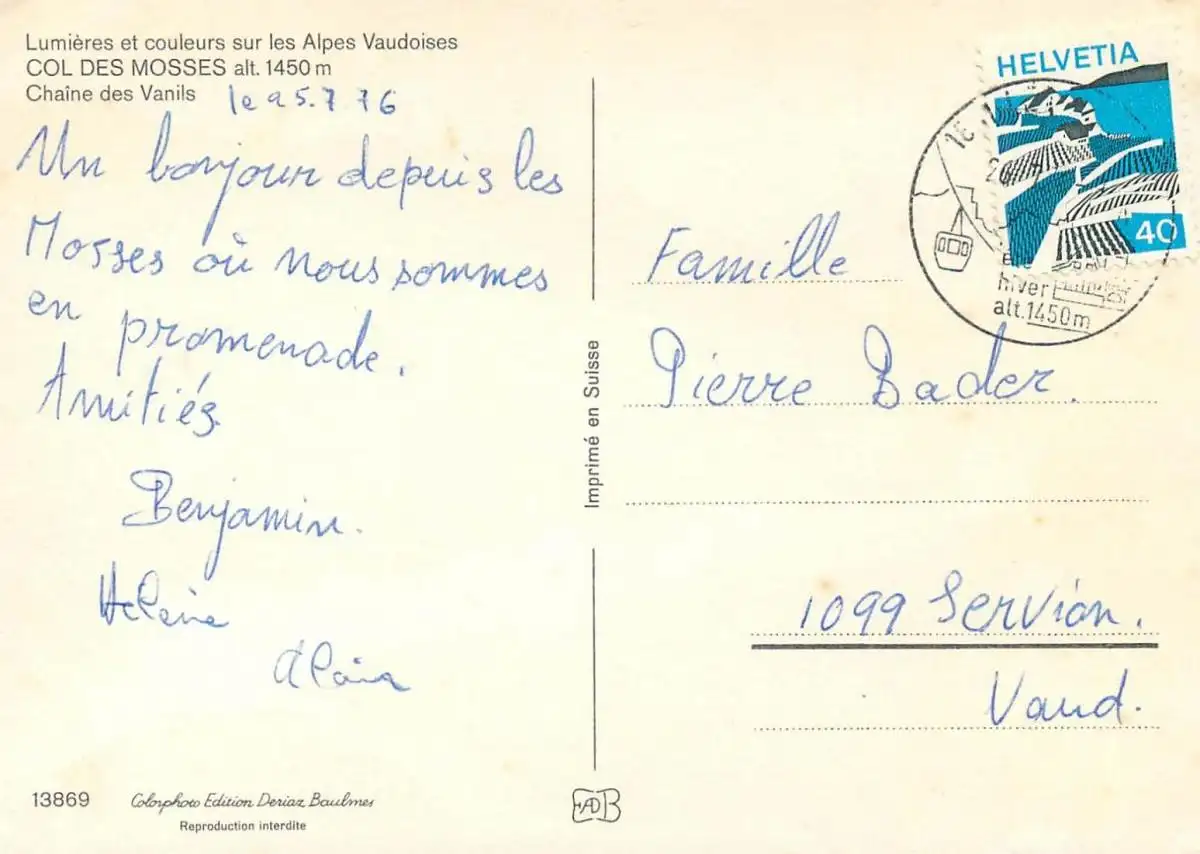 Lumières et couleurs sur les Alpes Vaudoises
COL DES MOSSES alt. 1450 m
Chaîne des Vanils
le 25.7.76
Un bonjour depuis les
Mosses où nous sommes
en promenade.
Amitiés
Benjamin.
Hélène
Alain
13869
Colorphoto Edition Deriaz Baulmes
Reproduction interdite
Imprimé en Suisse
HELVETIA
40
hiver
alt.1450m
Famille
Pierre Bader.
1099 Servion.
Vaud.